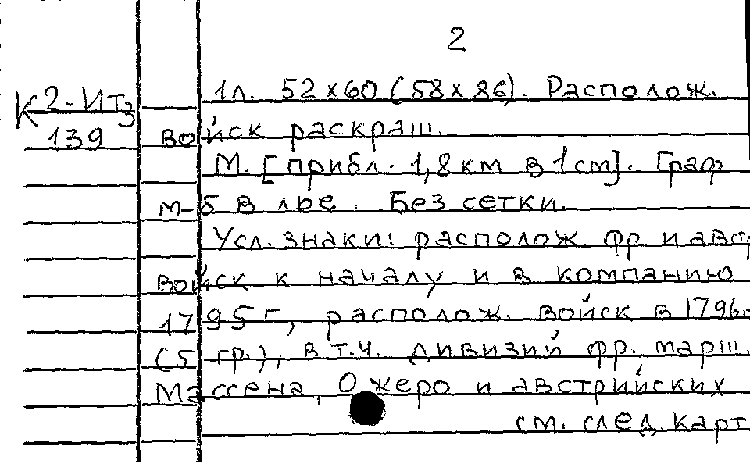 2
К 2-Ит3
139
1л. 52×60 (58×86). Располож.
войск раскраш.
М. [прибл. 1,8 км в 1 см]. Граф
м-б в лье. Без сетки.
Усл. знаки: располож фр и авст
войск к началу и в компанию
1795 г, располож. войск в 1796
(5 гр.), в т.ч. дивизий фр. марш.
Массена, Ожеро и австрийских
см. след. карт